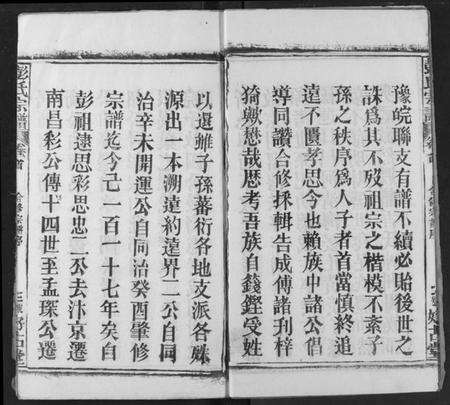 豫皖聯支有譜不續必貽後世之
誅爲其不歿祖宗之楷模不紊子
孫之秩序爲人子者首當慎終追
遠不匱孝思今也賴族中諸公倡
導同讚合修採輯告成傳諸刊梓
猗歟懋哉歷考吾族自籛鏗受姓
以還雖子孫蕃衍各地支派各殊
源出一本溯遠約遠界二公自同
治辛未開運公自同治癸酉肇修
宗譜迄今已一百一十七年矣自
彭祖逮思彩思忠二公去汴京遷
南昌彩公傳十四世至孟琛公遷
彭氏宗譜
卷首
合修宗譜序
三瑞好古堂